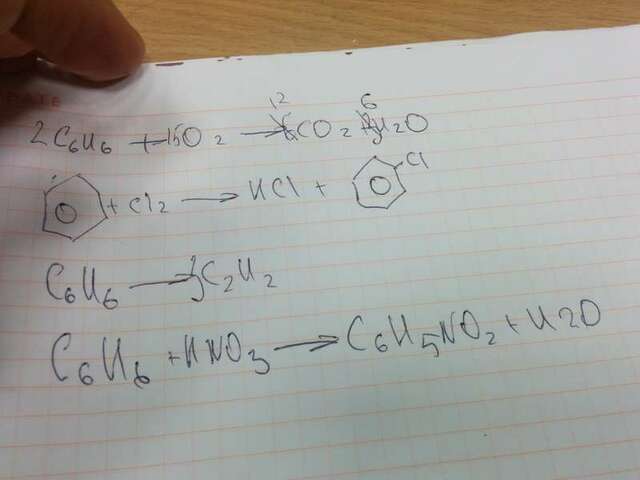 2C6H6 + 15O2 → 12CO2 + 6H2O
+ Cl2 → HCl + Cl
C6H6 → 3C2H2
C6H6 + HNO3 → C6H5NO2 + H2O